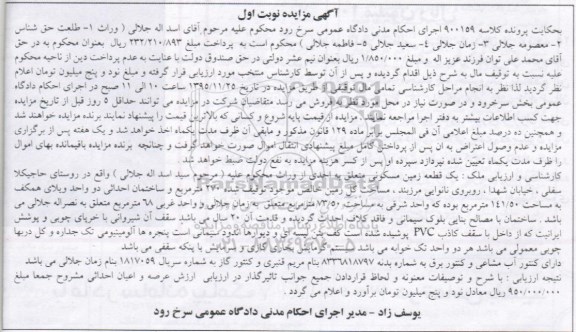 آگهی مزایده نوبت اول
بحکایت پرونده کلاسه ۹۰۰۱۵۹ اجرای احکام مدنی دادگاه عمومی سرخ رود محکوم علیه مرحوم آقای اسد اله جلالی ( وراث ۱- طلعت حق شناس
۲- معصومه جلالی ۳- زمان جلالی ۴- سعید جلالی ۵- فاطمه جلالی ) محکوم است به پرداخت مبلغ ۲۳۲/۲۱۰/۸۹۳ ریال بعنوان محکوم به در حق
آقای محمد علی توان فرزند عزیز اله و مبلغ ۱/۸۵۰/۰۰۰ ریال بعنوان نیم عشر دولتی در حق صندوق دولت با عنایت به عدم پرداخت دین از ناحیه محکوم
علیه نسبت به توقیف مال به شرح ذیل اقدام گردیده و پس از آن توسط کارشناس منتخب مورد ارزیابی قرار گرفته و مبلغ نود و پنج میلیون تومان اعلام
نظر گردید لذا نظر به انجام مراحل کارشناسی تمامی مال توقیفی از طریق مزایده در تاریخ ۱۳۹۵/۱۱/۲۵ ساعت ۱۰ الی ۱۱ صبح در اجرای احکام دادگاه
عمومی بخش سرخرود و در صورت نیاز در محل مورد نظر به فروش می رسد متقاضیان شرکت در مزایده می توانند حداقل ۵ روز قبل از تاریخ مزایده
جهت کسب اطلاعات بیشتر به دفتر اجرا مراجعه نمایند. مزایده از قیمت پایه شروع و کسانی که بالاترین قیمت را پیشنهاد نمایند برنده مزایده خواهند شد
و همچنین ده درصد مبلغ اعلامی آن فی المجلس برابر ماده ۱۲۹ قانون مذکور و مابقی آن ظرف مدت یکماه اخذ خواهد شد و یک هفته پس از برگزاری
مزایده و عدم وصول اعتراض به ان پس از پرداخت کامل مبلغ پیشنهادی انتقال اموال صورت خواهد گرفت و چنانچه برنده مزایده باقیمانده بهای اموال
را ظرف مدت یکماه تعیین شده نپردازد سپرده او پس از کسر هزینه مزایده به نفع دولت ضبط خواهد شد .
کارشناسی و ارزیابی ملک : یک قطعه زمین مسکونی متعلق به احدی از وراث محکوم علیه ( مرحوم سید اسد اله جلالی ) واقع در روستای حاجیکلا
سفلی ، خیابان شهدا ، روبروی نانوایی مرزبند ، مساحت و ساختمان احداثی دو واحد ویلای همکف
به مساحت ۱۴۱/۵۰ مترمربع بوده که واحد شرقی به مساحت ۷۳/۵۰ مترمربع متعلق به زمان جلالی و واحد غربی ۶۸ مترمربع متعلق به نصراله جلالی می
باشد . ساختمان با مصالح بنایی بلوک سیمانی و فاقد کلاف احداث گردیده و قدمت آن ۲۰ سال می باشد سقف آن شیروانی با خرپای چوبی و پوشش
ایرانیت که از داخل با سقف کاذب PVC پوشیده شده است کف سازی سیمانی و دیوارها اندود سیمانی است پنجره ها آلومینیومی تک جداره و کل دربها
چوبی معمولی می باشد هر دو واحد تک خوابه می باشد گرمایش بخاری گازی و سرمایش با پنکه سقفی می باشد
دارای کنتور آب مشاعی و کنتور برق به شماره بدنه ۸۳۳۶۸۱۸۷۹۷ بنام مریم قنبری و کنتور گاز به شماره سریال ۱۸۱۷۰۵۹ بنام زمان جلالی می باشد
نتیجه ارزیابی : با شرح و توصیفات معنونه و لحاظ قراردادن جمیع جوانب تاثیرگذار در ارزیابی ارزش عرصه و اعیان احداثی مشروح جمعا مبلغ
۹۵۰/۰۰۰/۰۰۰ ریال معادل نود و پنج میلیون تومان برآورد و اعلام می گردد .
یوسف زاد - مدیر اجرای احکام مدنی دادگاه عمومی سرخ رود